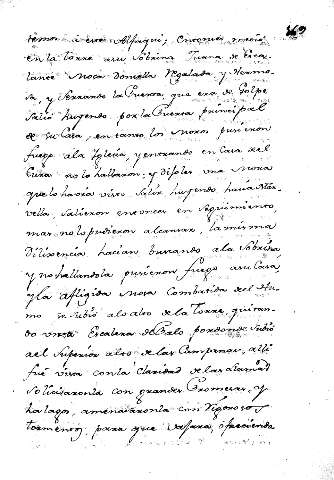 169
temos a este Alfaqui; entonces metió
en la torre a su Sobrina Juana de Esca
lante Moza Donzella Regalada, y Hermo
sa, y serrando la Puerta, que era de Golpe
Salió huyendo, por la Puerta principal
de su Casa, en tanto los Moros pusieron
fuego a la Yglecia, y entrando en Casa del
Cura no lo hallaron; y disoles una Mora
que lo havia visto Salir huyendo hacia Mar
vella, Salieron entonces en Seguimiento
mas no lo pudieron alcanzar, la misma
Diligencia hacian buscando a la Sobrina,
y no hallandola pusieron fuego a su Casa,
y la afligida Moza Combatida del Hu
mo se subió a lo alto de la Torre, quitan
do una Escalera de Palo por donde Subió
a el Superior alto de las Campanas, allí
fue vista con la Claridad de las
Solicitaronla con grandes Promesas, y
halagos, amenazaronla con Vigorosos
tormentos para que vajara, ofreciendo